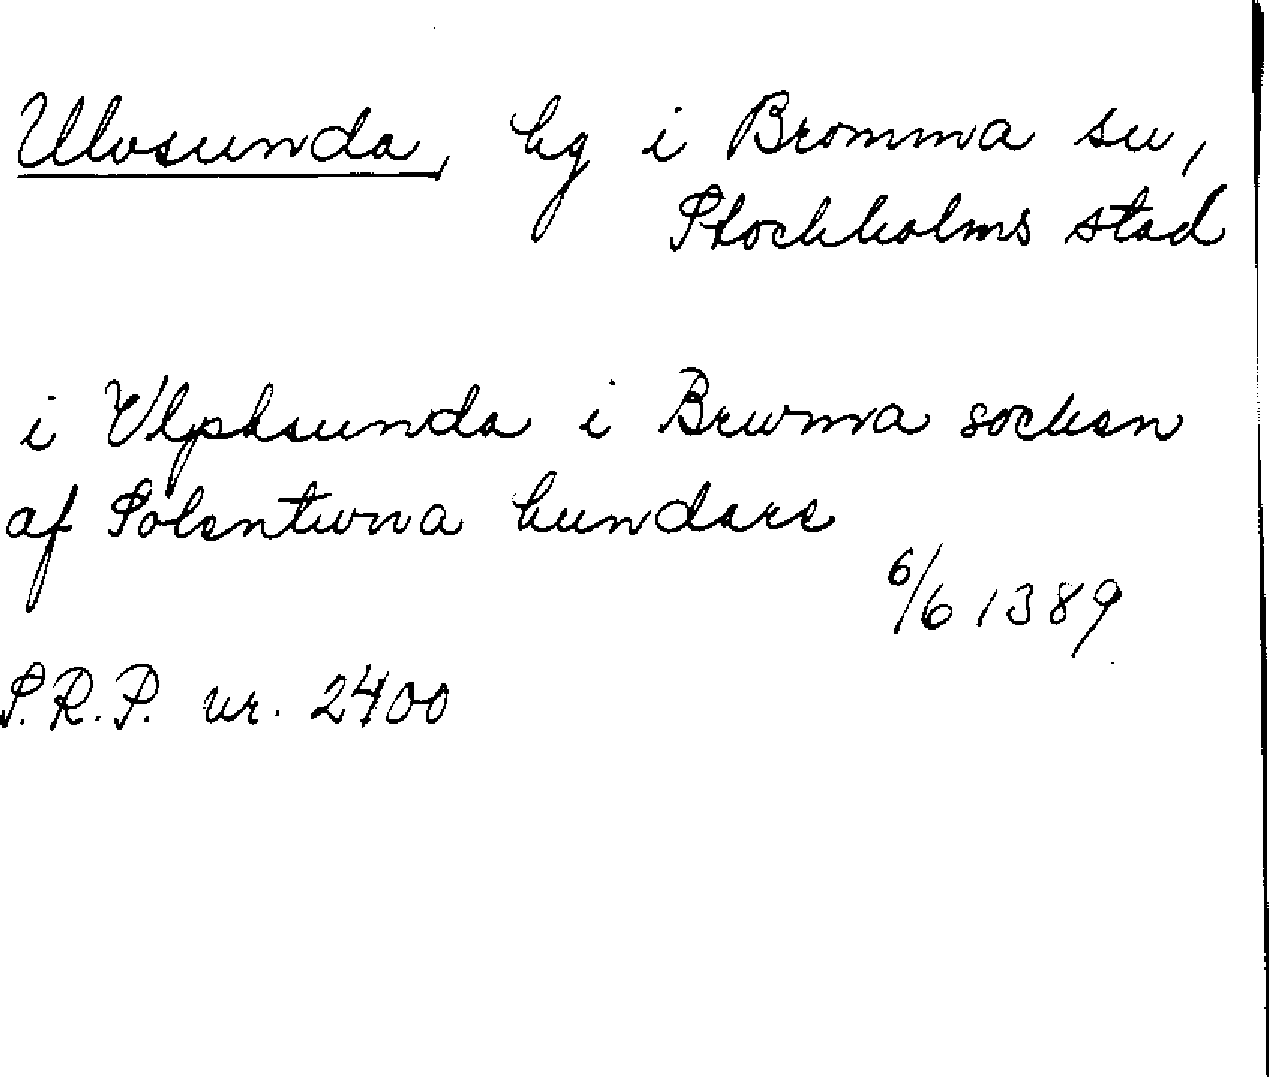 Ulvsunda, hg i Bromma sn,
Stockholms stad
i Vlphsunda i Brwma socken
af Solentwna hundare
6/6 1389
S.R.P. nr. 2400